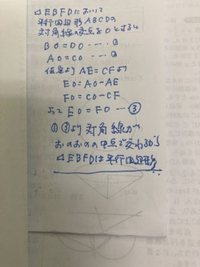 □EBFDにおいて
平行四辺形ABCDの
対角線の交点をOとすると
BO=DO …①
AO=CO …②
仮定よりAE=CFより
EO=AO-AE
FO=CO-CF
よってEO=FO …③
①③より対角線が
おのおのの中点で交わるから
□EBFDは平行四辺形